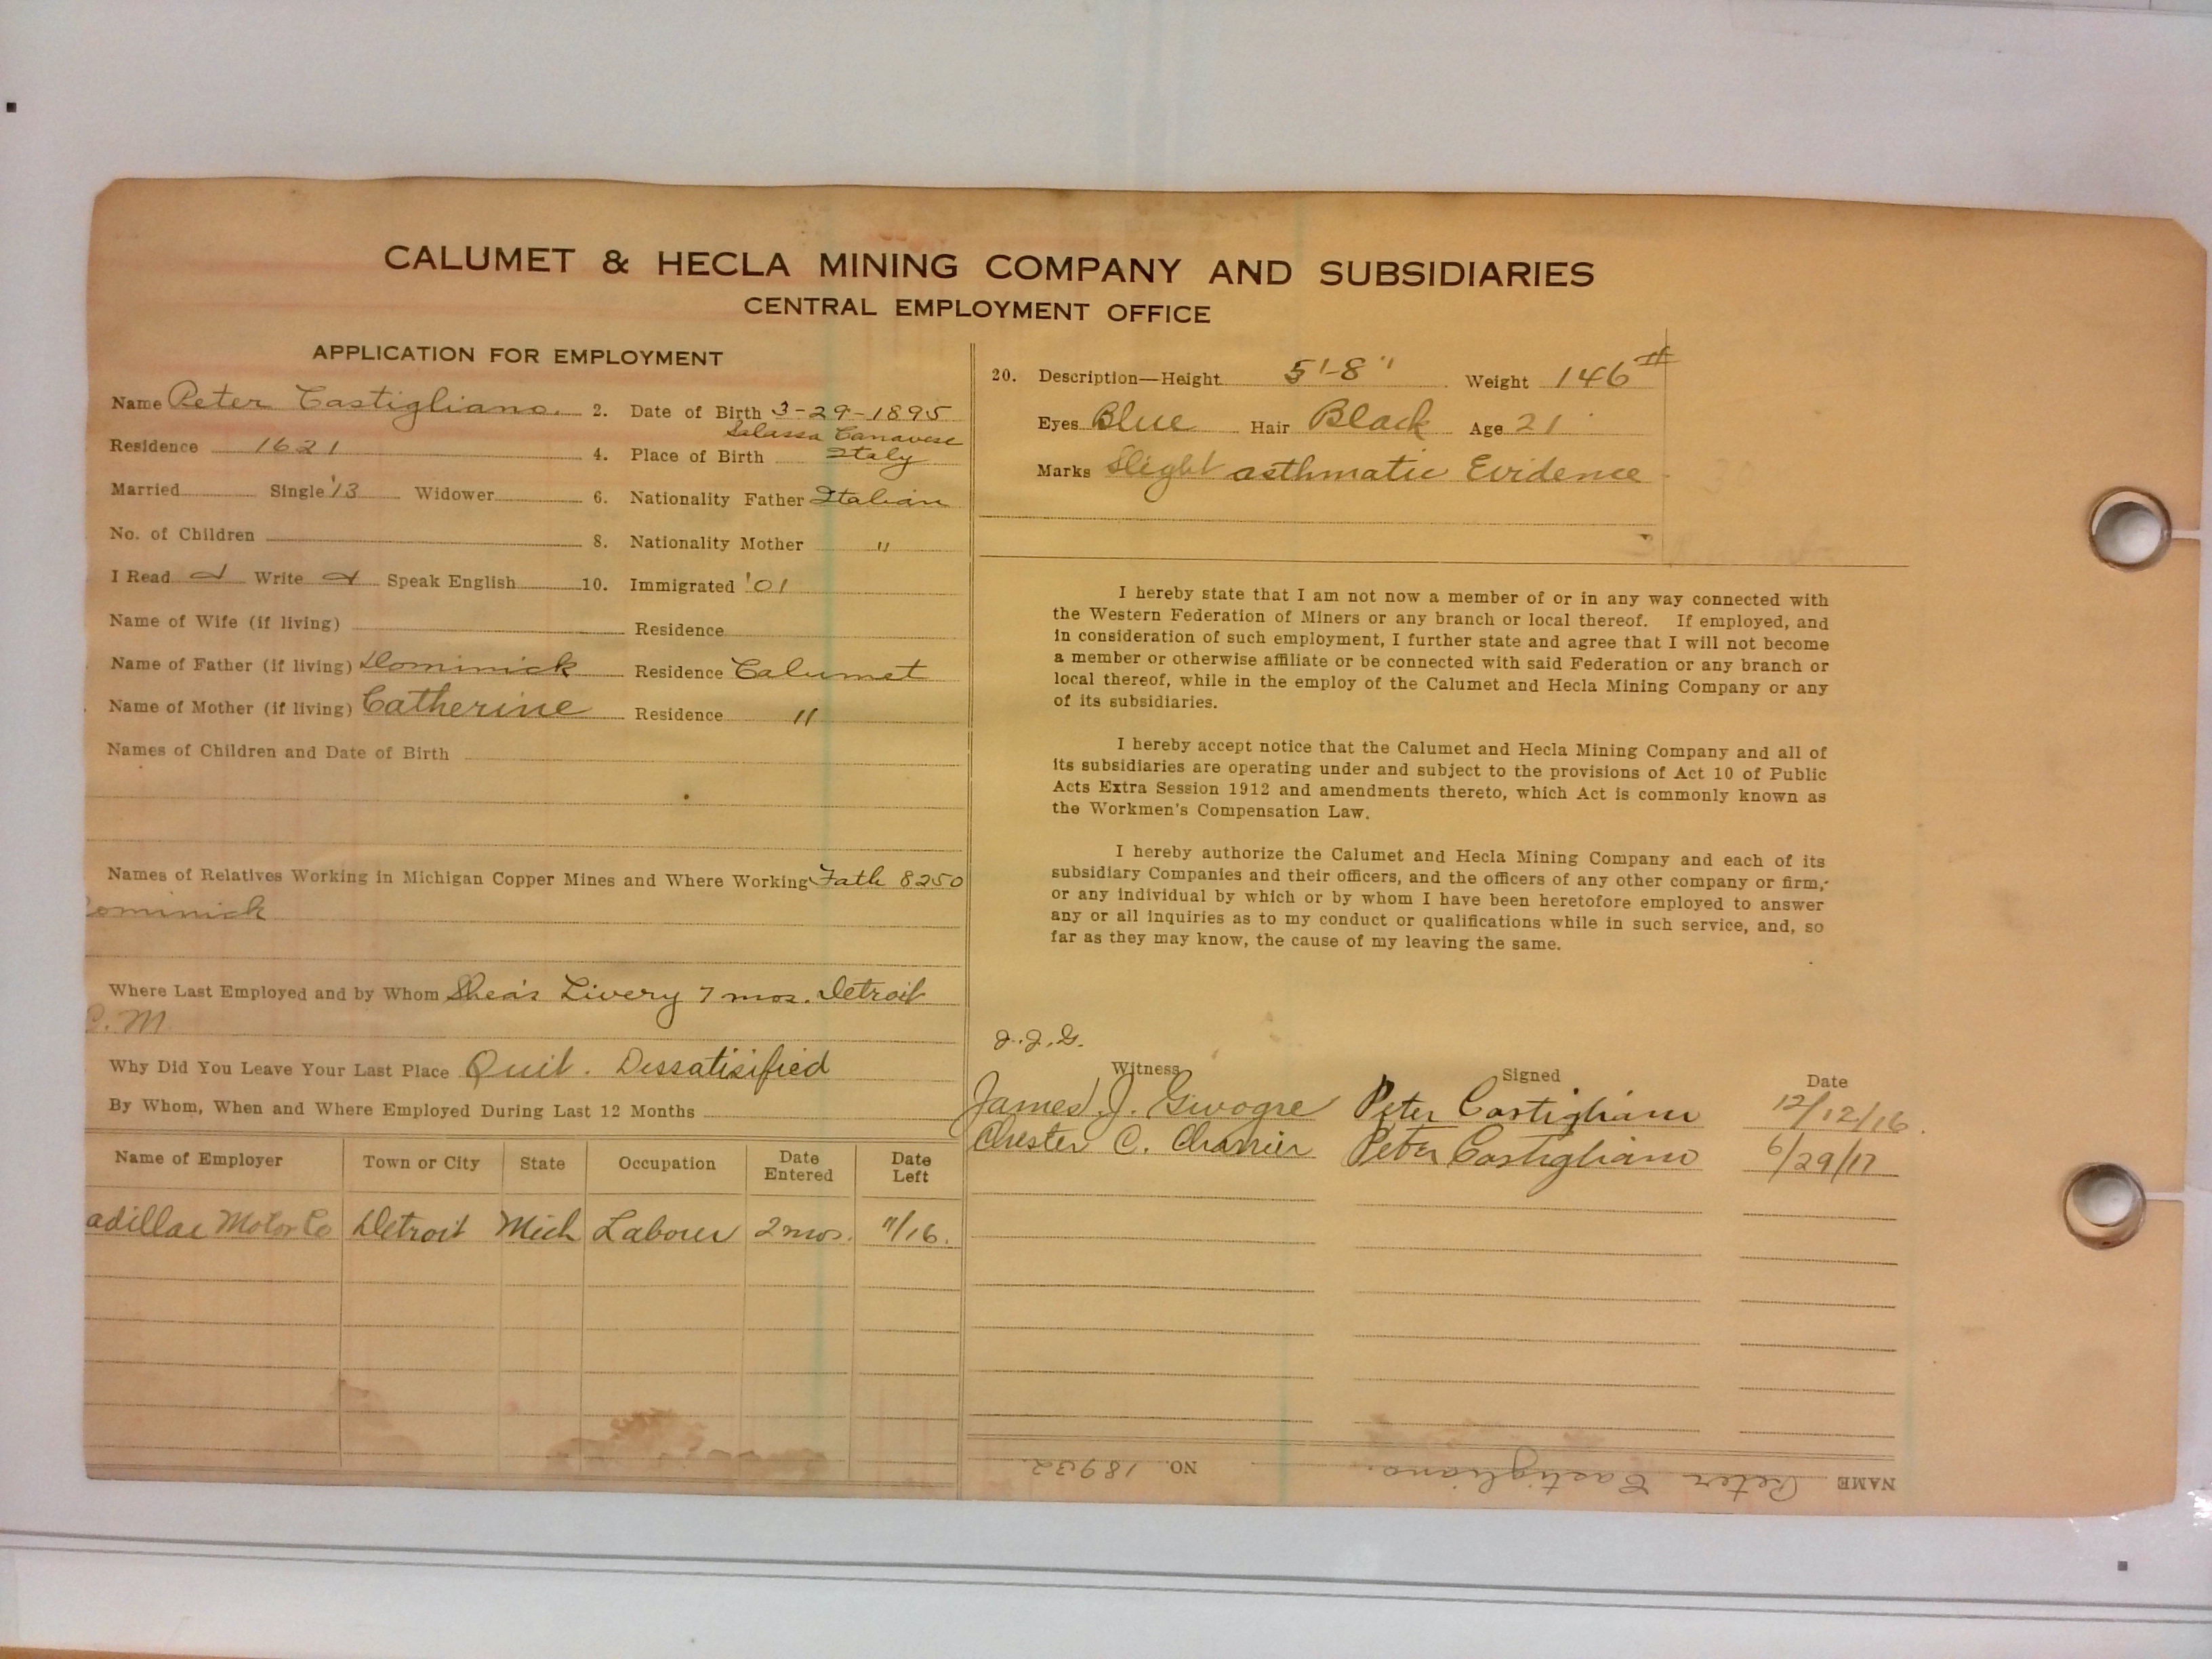 CALUMET & HECLA MINING COMPANY AND SUBSIDIARIES
CENTRAL EMPLOYMENT OFFICE
APPLICATION FOR EMPLOYMENT
Name Peter Castigliano. 2. Date of Birth 3-29-1895
Salassa Canavese
Residence 1621 4. Place of Birth Italy
Married Single '13 Widower 6. Nationality Father Italian
No. of Children 8. Nationality Mother "
I Read Write Speak English 10. Immigrated '01
Name of Wife (if living) Residence
Name of Father (if living) Dominick Residence Calumet
Name of Mother (if living) Catherine Residence "
Names of Children and Date of Birth
Names of Relatives Working in Michigan Copper Mines and Where Working Fath 8250
ominick
Where Last Employed and by Whom Shea's Livery 7 mos. Detroit
C. M
Why Did You Leave Your Last Place Quit. Dissatisified
By Whom, When and Where Employed During Last 12 Months
Name of Employer Town or City State Occupation Date Entered Date Left
adillac Motor Co Detroit Mich Laborer 2 mos. 11/16.
20. Description—Height 5'-8" Weight 146#
Eyes Blue Hair Black Age 21
Marks Slight asthmatic Evidence
I hereby state that I am not now a member of or in any way connected with
the Western Federation of Miners or any branch or local thereof. If employed, and
in consideration of such employment, I further state and agree that I will not become
a member or otherwise affiliate or be connected with said Federation or any branch or
local thereof, while in the employ of the Calumet and Hecla Mining Company or any
of its subsidiaries.
I hereby accept notice that the Calumet and Hecla Mining Company and all of
its subsidiaries are operating under and subject to the provisions of Act 10 of Public
Acts Extra Session 1912 and amendments thereto, which Act is commonly known as
the Workmen's Compensation Law.
I hereby authorize the Calumet and Hecla Mining Company and each of its
subsidiary Companies and their officers, and the officers of any other company or firm,
or any individual by which or by whom I have been heretofore employed to answer
any or all inquiries as to my conduct or qualifications while in such service, and, so
far as they may know, the cause of my leaving the same.
J.J.G.
Witness Signed Date
James J. Peter Castigliano 12/12/16.
Chester C. Peter Castigliano 6/29/17
NAME Peter Castigliano. NO. 18932